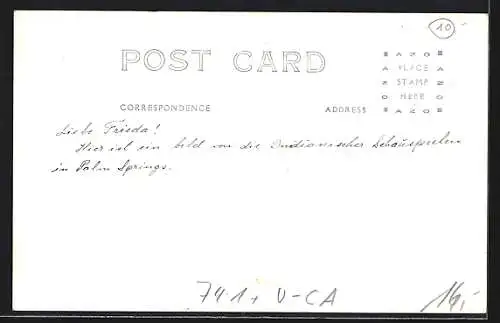 10
POST CARD
AZOE
PLACE
STAMP
HERE
AZOE
CORRESPONDENCE
ADDRESS
Liebe Frieda!
Hier ist ein bild von die Indianischer Schauspielern
in Palm Springs.
74.1+ V-CA
14,-